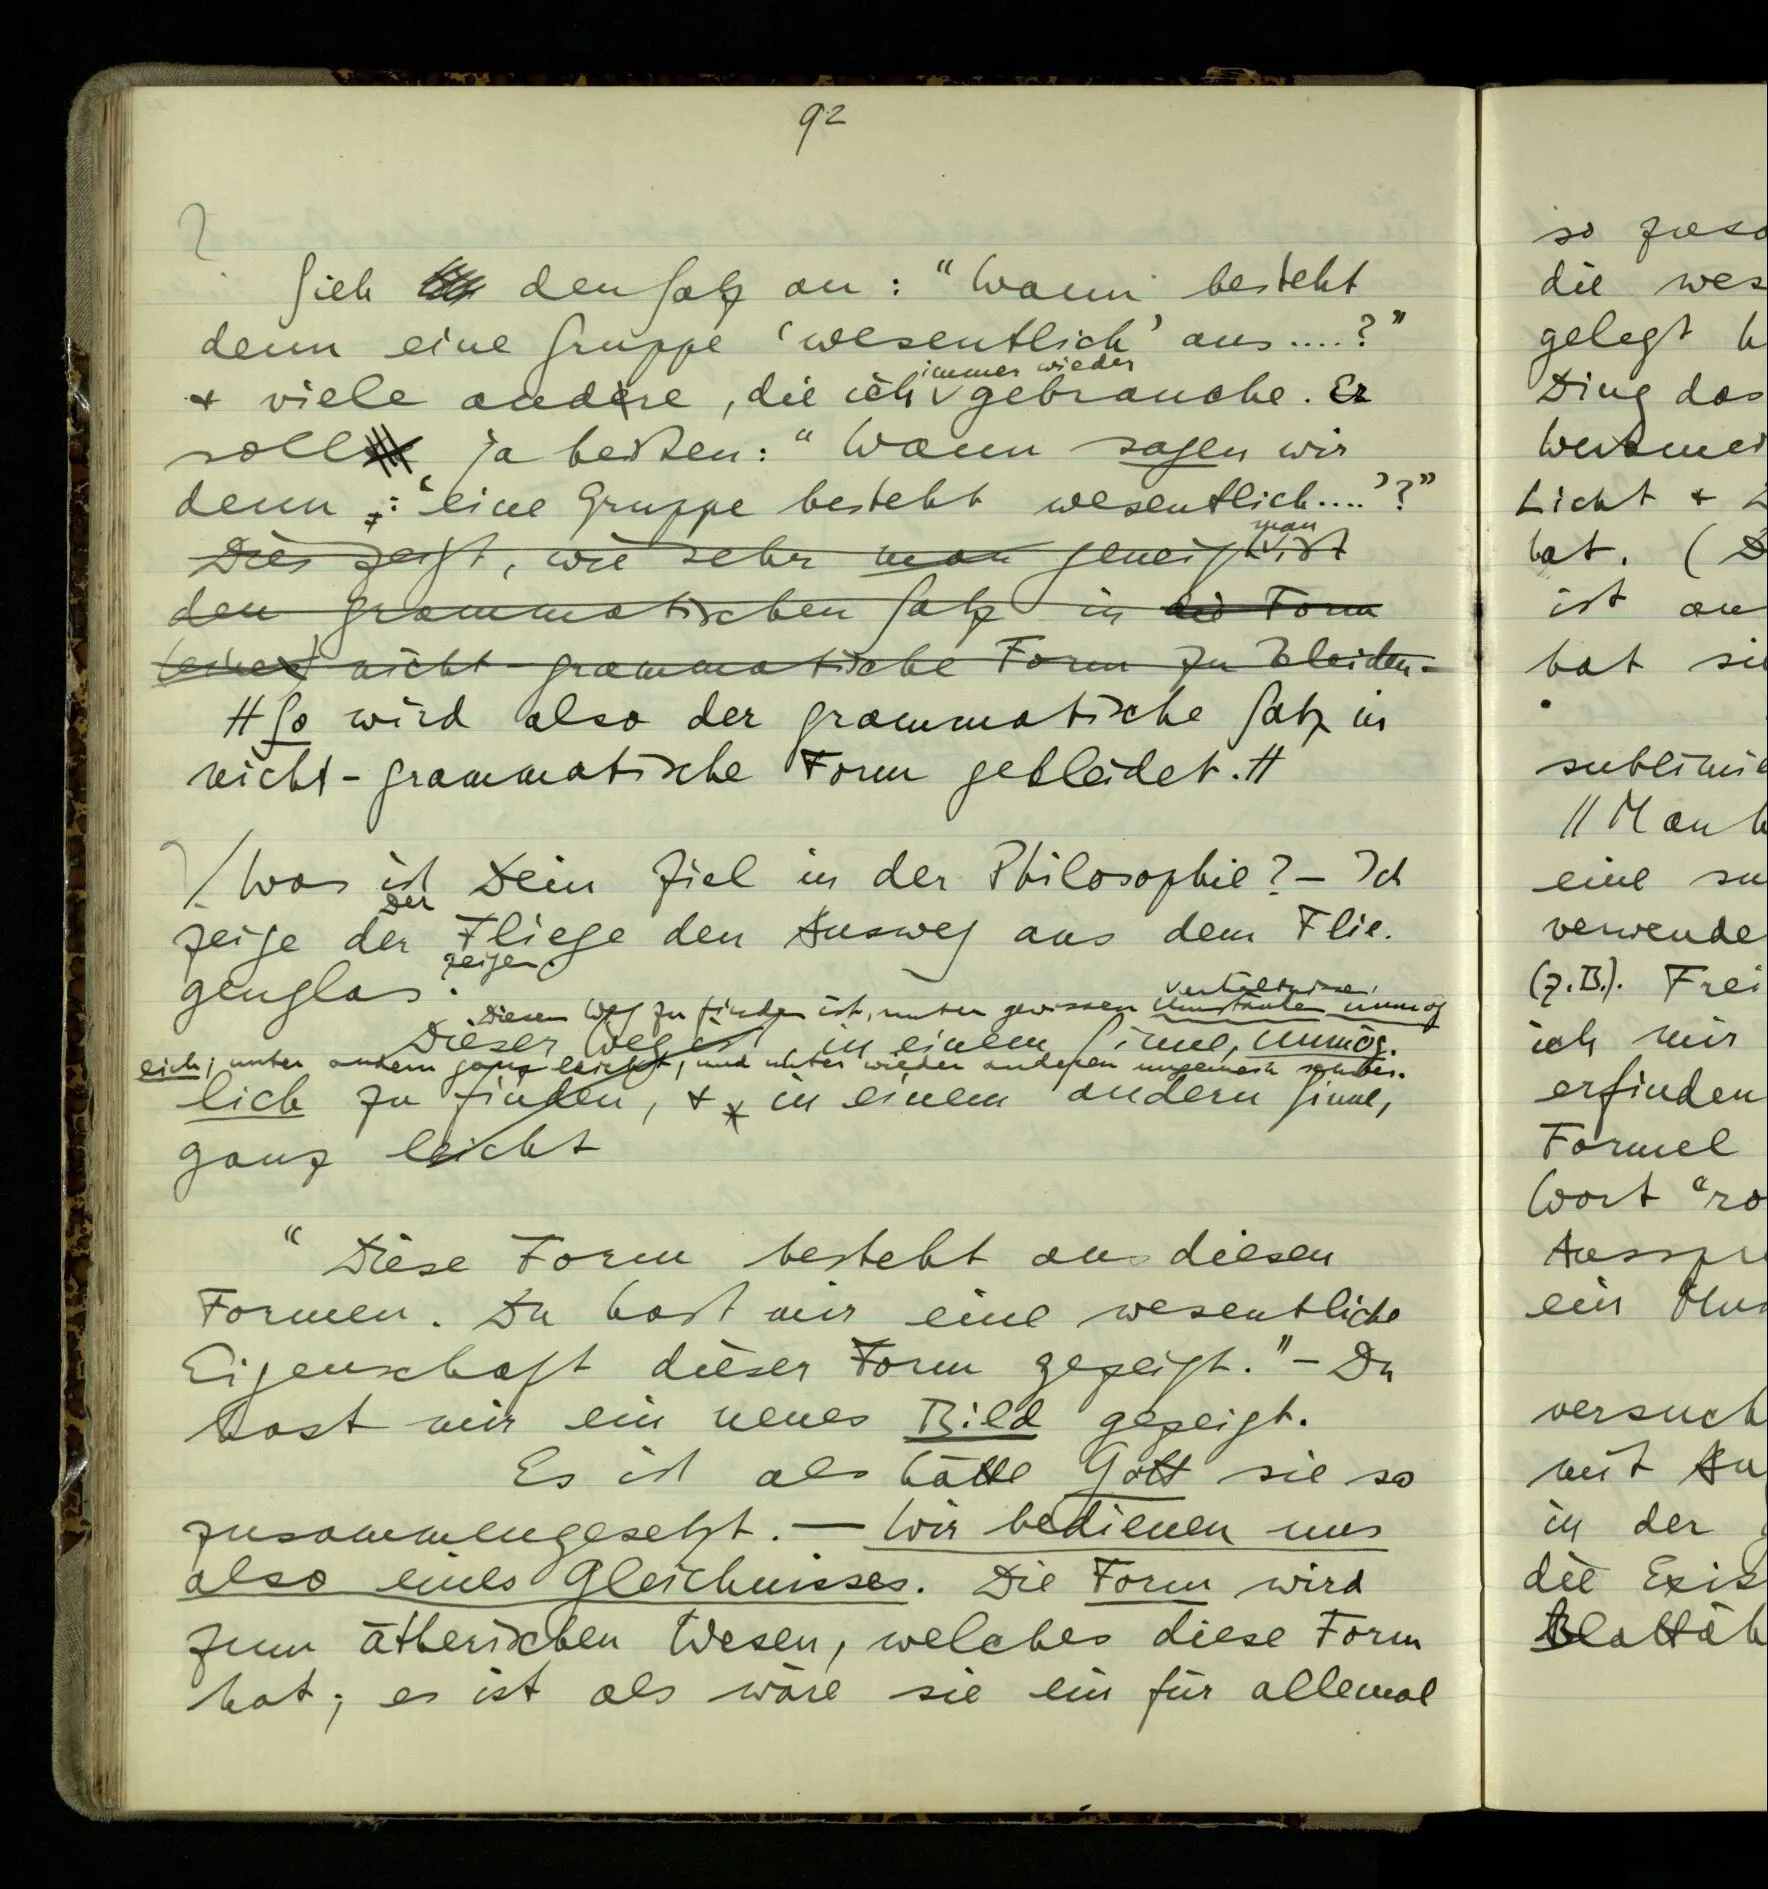 92
?
Sieh den Satz an: "Wann besteht
denn eine Gruppe 'wesentlich' aus....?"
immer wieder
+ viele andere, die ich gebrauche. Er
soll ja heißen: "Wann sagen wir
denn: 'eine Gruppe besteht wesentlich....'?"
man
Dies zeigt, wie sehr man geneigt ist
den grammatischen Satz in die Form
(einer) nicht-grammatische Form zu kleiden.
//So wird also der grammatische Satz in
nicht-grammatische Form gekleidet.//
?/Was ist Dein Ziel in der Philosophie? – Ich
Der
zeige der Fliege den Ausweg aus dem Flie-
zeigen.
genglas.
Verhältnisse
Diesen Weg zu finden ist, unter gewissen Umständen unmög
Dieser Weg ist, in einem Sinne, unmög-
lich; unter andern ganz leicht, und unter wieder anderen ungemein schwer.
lich zu finden, + in einem andern Sinne,
ganz leicht
"Diese Form besteht aus diesen
Formen. Du hast mir eine wesentliche
Eigenschaft dieser Form gezeigt." – Du
hast mir ein neues Bild gezeigt.
Es ist als hätte Gott sie so
zusammengesetzt. — Wir bedienen uns
also eines Gleichnisses. Die Form wird
zum ätherischen Wesen, welches diese Form
hat; es ist als wäre sie ein für allemal
so
die wes
gelegt h
Ding das
Licht +
hat. (D
ist an
hat sie
sublimie
//Man h
eine su
verwende
(z.B.). Frei
ich mir
erfinden
Formel
Wort "ro
Ausspr
ein Mus
versuch
mit Au
in der
die Exis